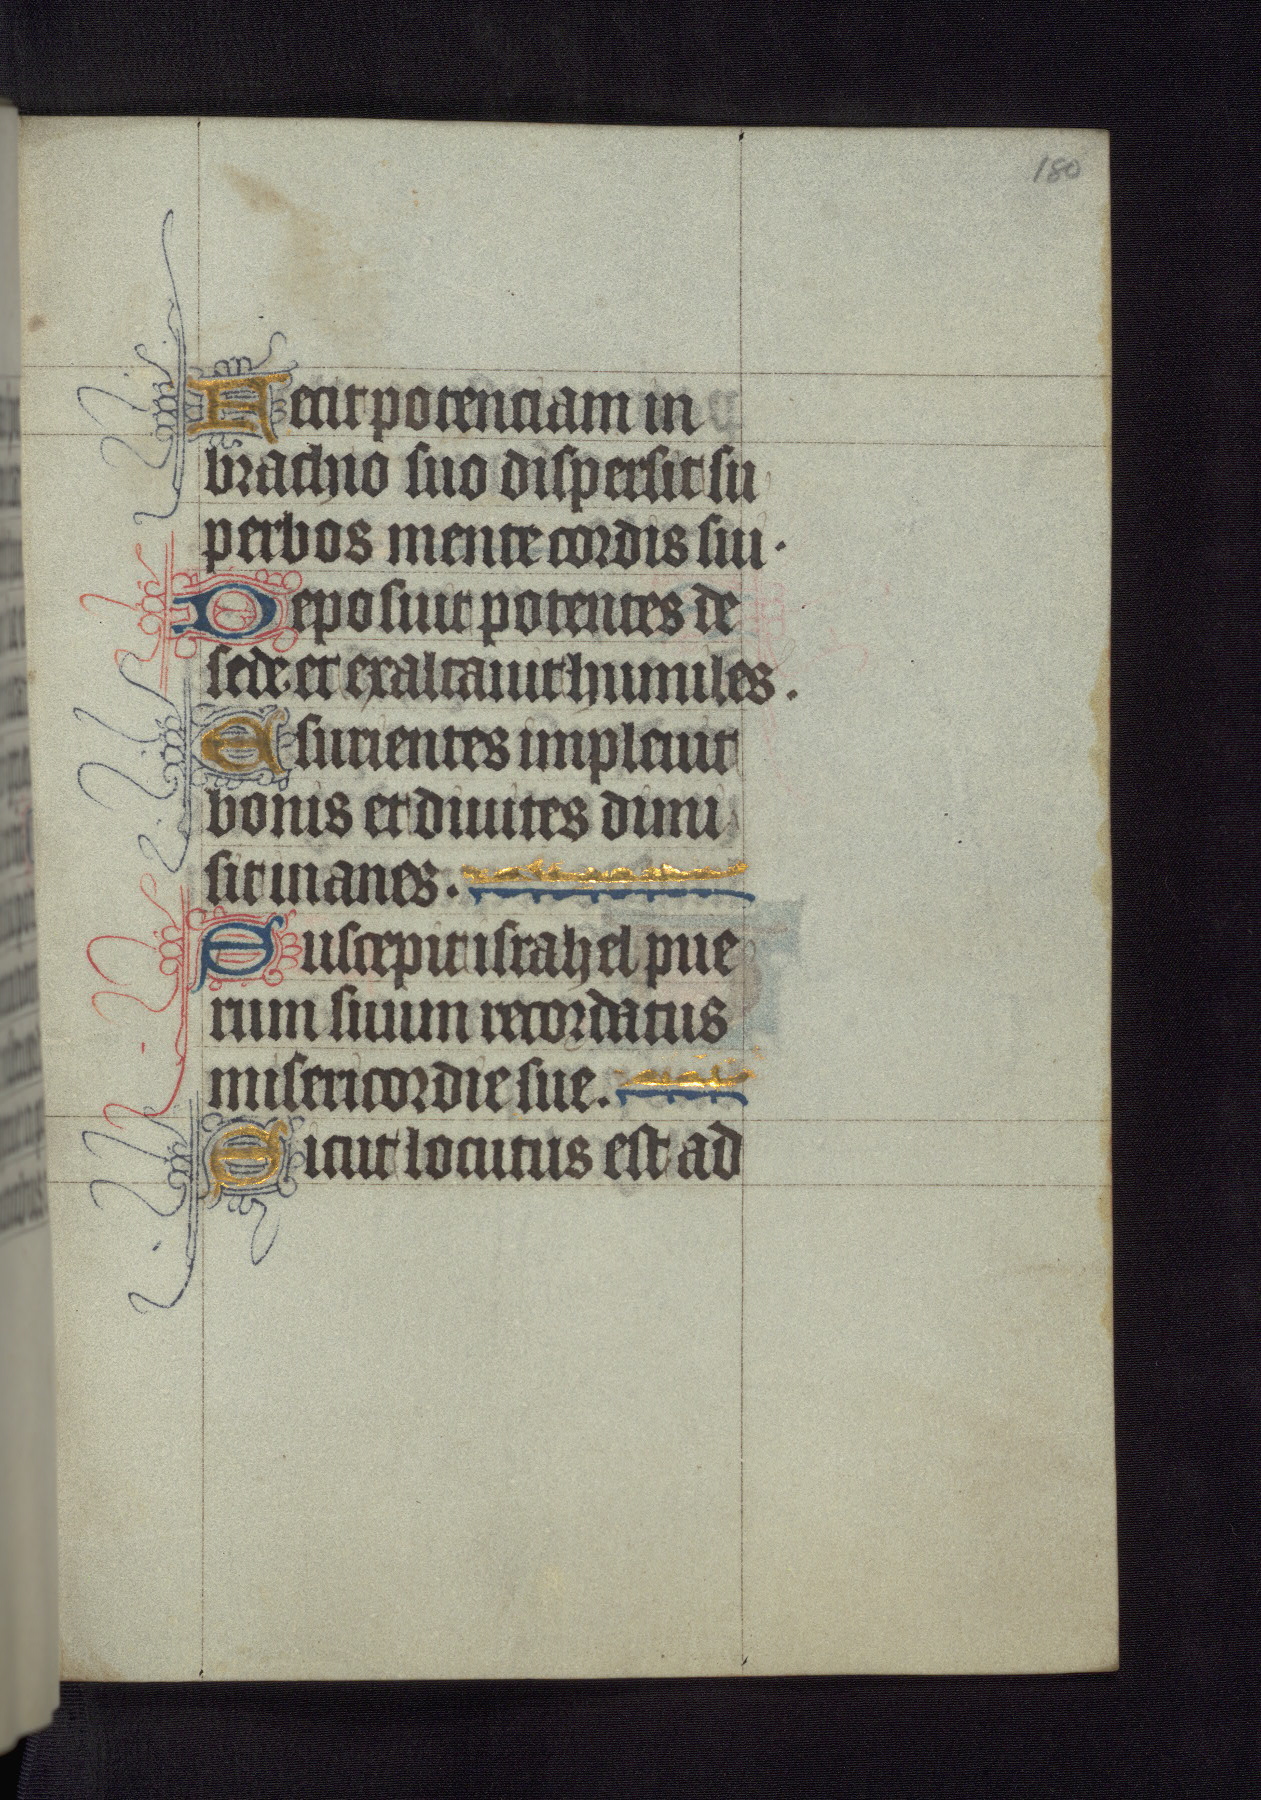 180
Fecit potenciam in
brachio suo dispersit su
perbos mente cordis sui.
Deposuit potentes de
sede. et exaltauit humiles.
Esurientes impleuit
bonis et diuites dimi
sit inanes.
Suscepit israhel pue
rum suum recordatus
misericordie sue.
Sicut locutus est ad